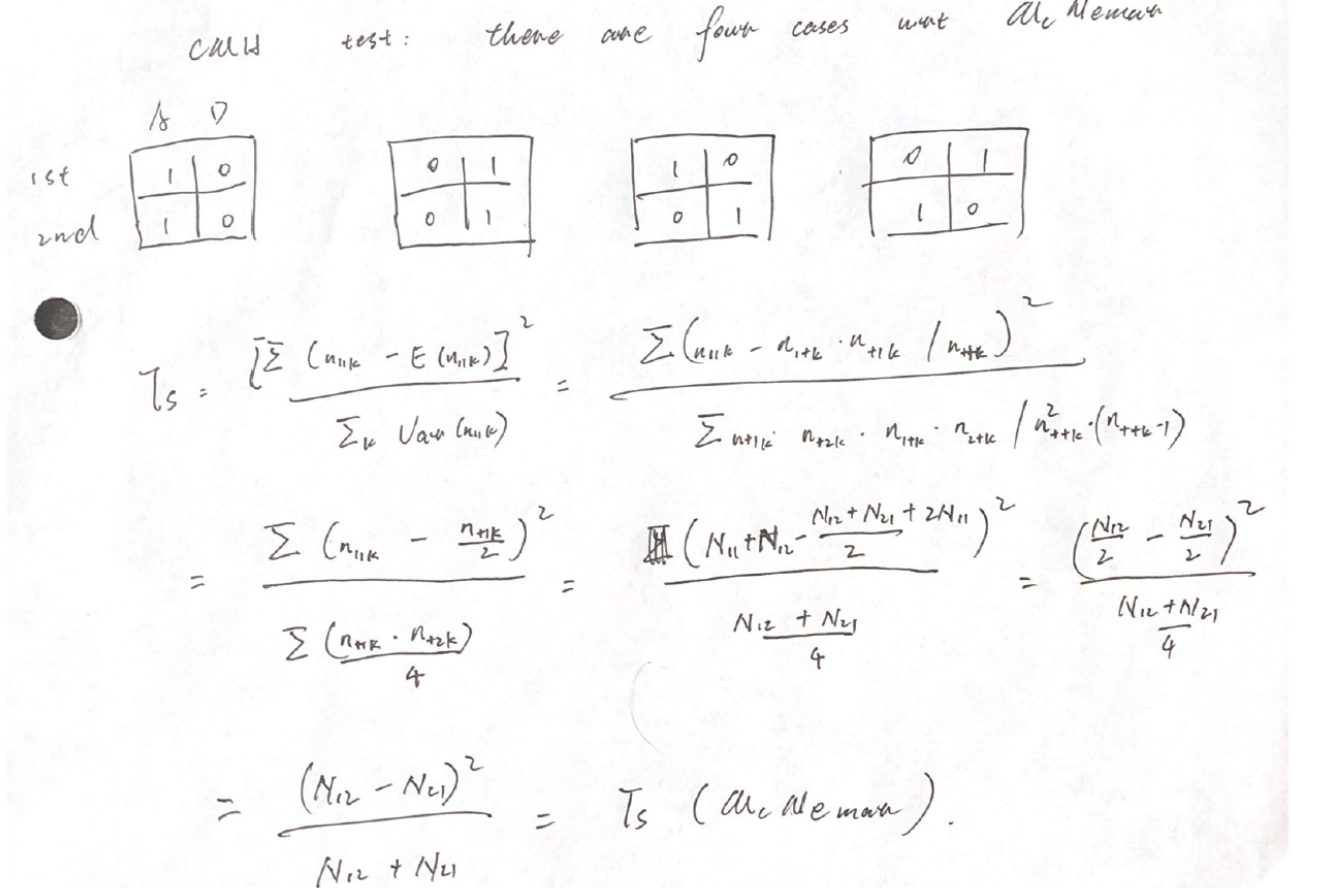 CMH test: there are four cases wrt McNemar
A D
1st 1 0 0 1 1 0 0 1
2nd 1 0 0 1 0 1 1 0
T_S = [Σ (n_{11k} - E(n_{11k})]^2 / Σ_k Var(n_{11k}) = Σ(n_{11k} - n_{1+k} · n_{+1k} / n_{++k})^2 / Σ n_{+1k} · n_{+2k} · n_{1+k} · n_{2+k} / n^2_{++k} · (n_{++k}-1)
= Σ (n_{11k} - n_{+1k}/2)^2 / Σ (n_{+1k} · n_{+2k})/4 = (N_{11} + N_{12} - (N_{12} + N_{21} + 2N_{11})/2)^2 / ((N_{12} + N_{21})/4) = (N_{12}/2 - N_{21}/2)^2 / ((N_{12} + N_{21})/4)
= (N_{12} - N_{21})^2 / (N_{12} + N_{21}) = T_S (McNemar).